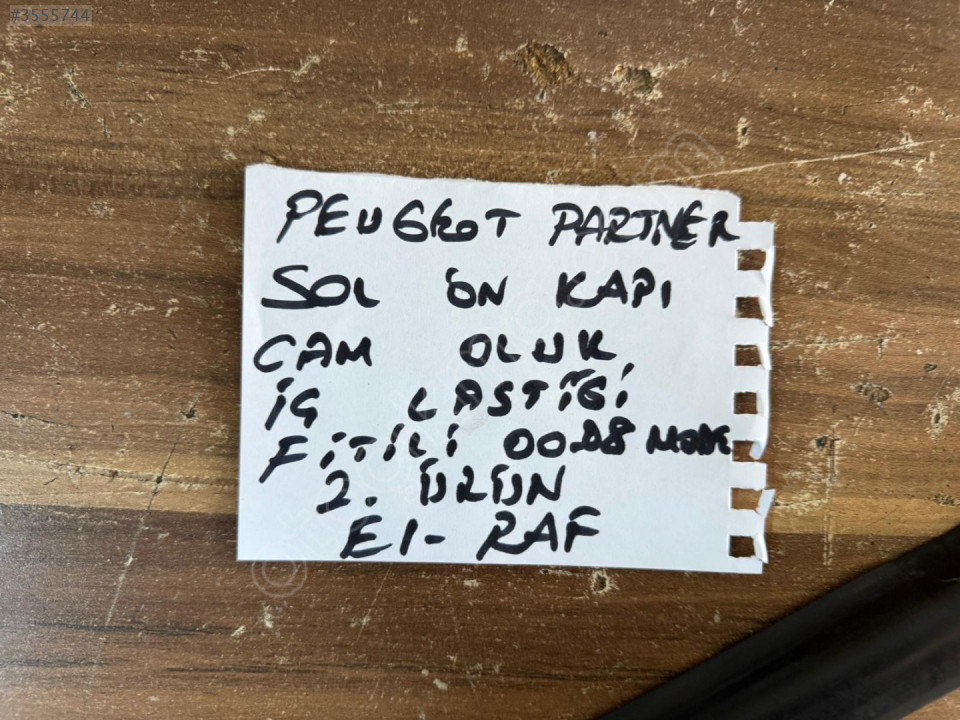 #3555744
PEUGEOT PARTNER
SOL ÖN KAPI
CAM OLUK
İÇ LASTİĞİ
FİTİLİ 0008 MODE
2. ÜRÜN
E1- RAF